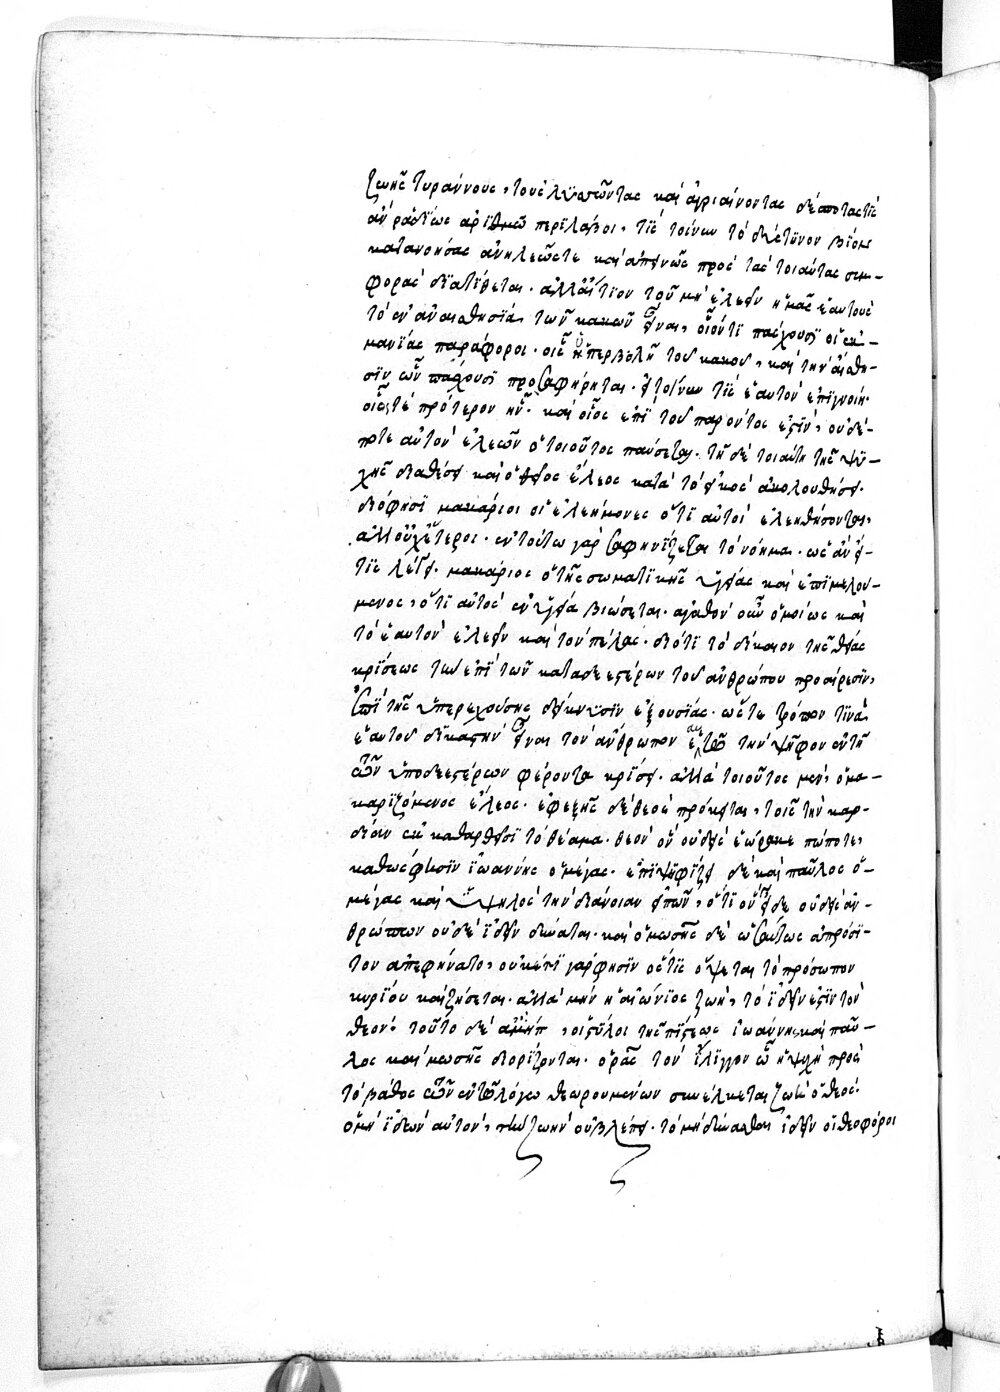 ζωῆς τυράννους, τοὺς λυποῦντας καὶ ἀγριαίνοντας δέσποτας τίς
ἂν ῥαδίως ἀριθμῷ περιλάβοι, τίς τοίνυν τὸ δύστηνον βίον
κατανοήσας ἀνηλεῶς τε καὶ ἀπηνῶς πρὸς τὰς τοιαύτας συμ-
φορὰς διατίθεται. ἀλλ' αἴτιον τοῦ μὴ ἐλεεῖν ἡμᾶς ἑαυτοὺς
τὸ ἐν ἀναισθησίᾳ τῶν κακῶν εἶναι, οἷόν τι πάσχουσι οἱ ἐκ
μανίας παράφοροι. οἷς ἡ ὑπερβολὴ τοῦ κακοῦ, καὶ τὴν αἴσθη-
σιν ὧν πάσχουσι προσαφήρηται. εἰ τοίνυν τις ἑαυτὸν ἐπιγνοίη
οἷός τε πρότερον ἦν. καὶ οἷος ἐπὶ τοῦ παρόντος ἐστίν, οὐδέ-
ποτε αὐτὸν ἐλεῶν ὁ τοιοῦτος παύσεται. τῇ δὲ τοιαύτῃ τῆς ψυ-
χῆς διαθέσει καὶ ὁ θεῖος ἔλεος κατὰ τὸ εἰκὸς ἀκολουθήσει.
διό φησι μακάριοι οἱ ἐλεήμονες ὅτι αὐτοὶ ἐλεηθήσονται,
ἀλλ' οὐχ ἕτεροι. ἐν τούτῳ γὰρ σαφηνίζεται τὸ νόημα. ὡς ἂν εἴ
τις λέγει. μακάριος ὁ τῆς σωματικῆς ὑγείας καὶ ἐπιμελού-
μενος, ὅτι αὐτὸς ἐν ὑγείᾳ βιώσεται. ἀγαθὸν οὖν ὁμοίως καὶ
τὸ ἑαυτὸν ἐλεεῖν καὶ τὸν πέλας. διότι τὸ δίκαιον τῆς θείας
κρίσεως τῶν ἐπὶ τῶν καταδεεστέρων τοῦ ἀνθρώπου προαίρεσιν,
ἐπὶ τῆς ὑπερεχούσης δείκνυσιν ἐξουσίας. ὥστε τρόπον τινὰ
ἑαυτοῦ δικαστὴν εἶναι τὸν ἄνθρωπον αὐτῷ τὴν ψῆφον ἐν τῇ
τῶν ὑποδεεστέρων φέροντα κρίσει. ἀλλὰ τοιοῦτος μὲν, ὁ μα-
καριζόμενος ἔλεος. ἐφεξῆς δὲ θεὸς πρόκειται, τοῖς τὴν καρ-
δίαν ἐκκαθαρθεῖσι τὸ θέαμα. θεὸν ὃν οὐδεὶς ἑώρακε πώποτε,
καθώς φησιν ἰωάννης ὁ μέγας. ἐπιψηφίζει δὲ καὶ παῦλος ὁ
μέγας καὶ ὑψηλὸς τὴν διάνοιαν εἰπών, ὅτι ὃν εἶδε οὐδεὶς ἀν-
θρώπων οὐδὲ ἰδεῖν δύναται. καὶ ὁ μωσῆς δὲ ὡσαύτως ἀπρόσι-
τον ἀπεφήνατο, οὐκέτι γάρ φησιν ὅστις ὄψεται τὸ πρόσωπον
κυρίου καὶ ζήσεται. ἀλλὰ μὴν ἡ αἰώνιος ζωή, τὸ ἰδεῖν ἐστιν τὸν
θεόν. τοῦτο δὲ , οἱ στύλοι τῆς πίστεως ἰωάννης καὶ παῦ-
λος καὶ μωσῆς διορίζονται. ὁρᾷς τὸν ἴλιγγον ᾧ ἡ ψυχὴ πρὸς
τὸ βάθος τῶν ἐν τῷ λόγῳ θεωρουμένων συνέλκεται ζωὴ ὁ θεός.
ὁ μὴ ἰδὼν αὐτὸν, τὴν ζωὴν οὐ βλέπει. τὸ μὴ δύνασθαι ἰδεῖν οἱ θεοφόροι